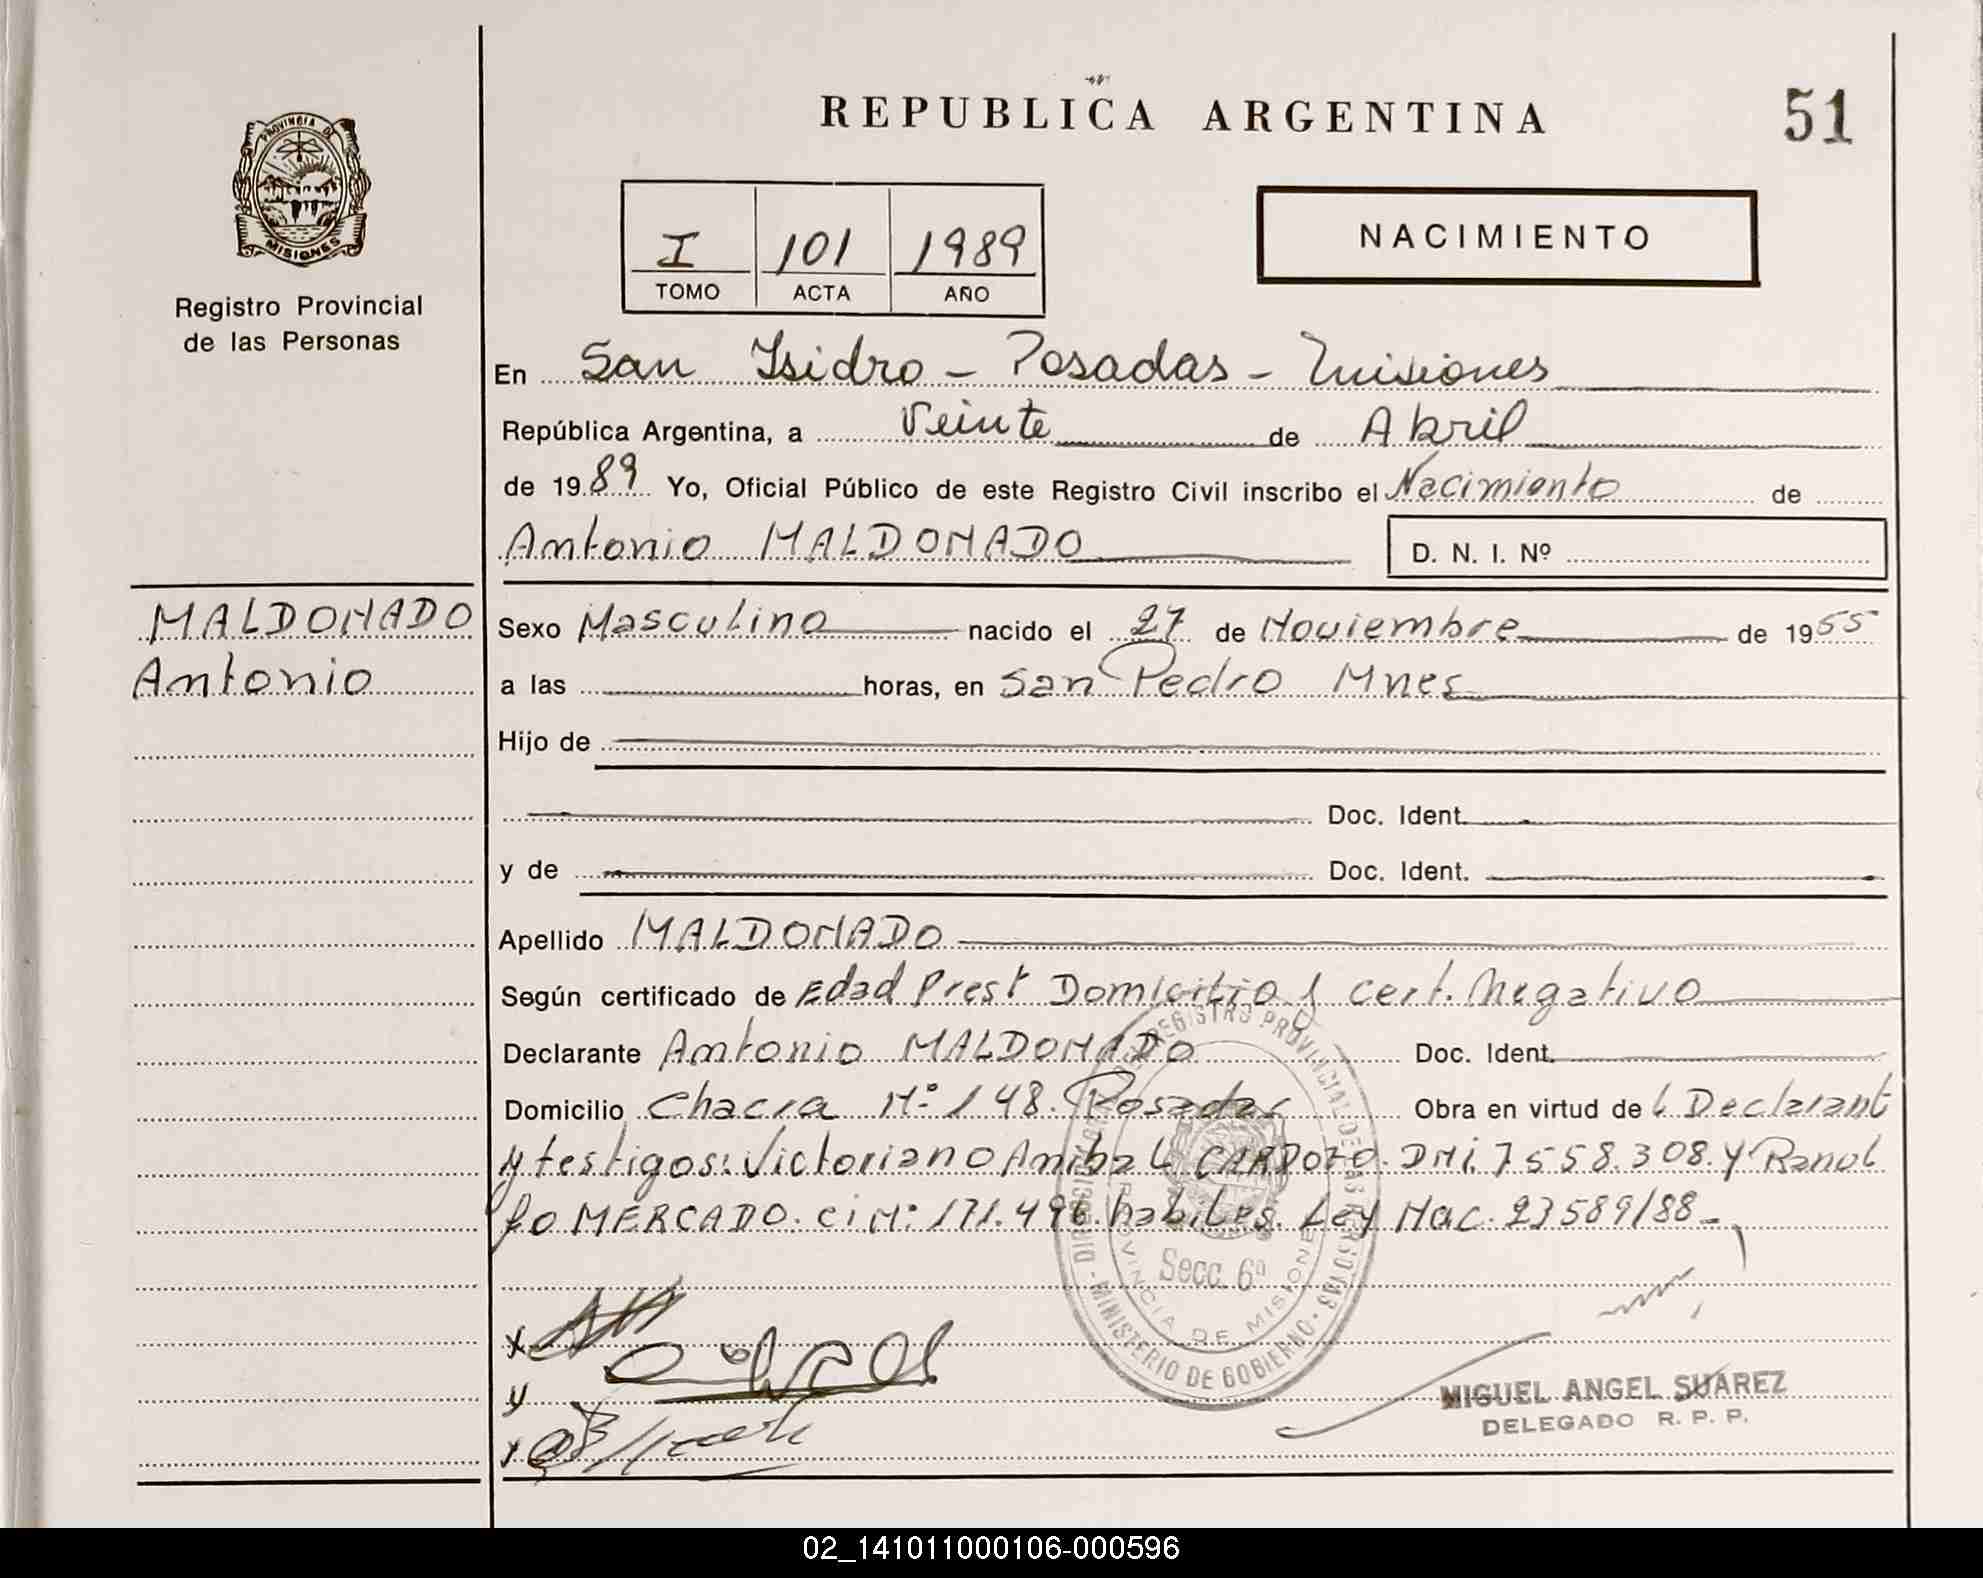 REPUBLICA ARGENTINA
51
PROVINCIA DE
MISIONES
Registro Provincial
de las Personas
I 101 1989
TOMO ACTA AÑO
NACIMIENTO
En San Isidro - Posadas - Misiones
República Argentina, a Veinte de Abril
de 1989 Yo, Oficial Público de este Registro Civil inscribo el Nacimiento de
Antonio MALDONADO D. N. I. Nº
MALDONADO
Antonio
Sexo Masculino nacido el 27 de Noviembre de 1955
a las horas, en San Pedro Mnes
Hijo de
Doc. Ident.
y de Doc. Ident.
Apellido MALDONADO
Según certificado de Edad Prest Domicilio y cert. Negativo
Declarante Antonio MALDONADO Doc. Ident.
Domicilio Chacra Nº 148. Posadas Obra en virtud de L Declarant
y testigos: Victoriano Anibal CARDOZO. DNi. 7558.308. y Ranol
fo MERCADO. Ci Nº 171.496. habiles. Ley Nac. 23589/88 -
REGISTRO PROVINCIAL DE LAS PERSONAS
MINISTERIO DE GOBIERNO
PROVINCIA DE MISIONES
Secc. 6ª
MIGUEL ANGEL SUAREZ
DELEGADO R. P. P.
02_141011000106-000596